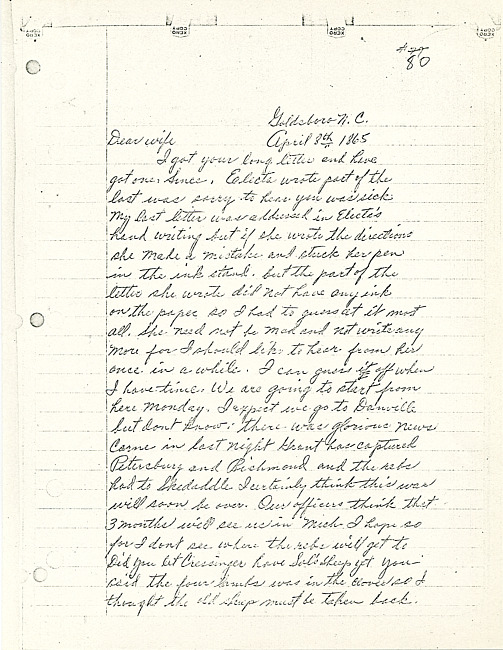 80
Goldsboro N. C.
Dear wife April 8th 1865
I got your long letter and have
got one since. Electa wrote part of the
last was sorry to hear you was sick
My last letter was addressed in Electa's
hand writing but if she wrote the directions
she made a mistake and stuck her pen
in the ink stand. but the part of the
letter she wrote did not have any ink
on the paper so I had to guess at it most
all. She need not be mad and not write any
more for I should like to hear from her
once in a while. I can guess it off when
I have time. We are going to start from
here Monday. I expect we go to Danville
but dont know. there was glorious news
came in last night Grant has captured
Petersburg and Richmond and the rebs
had to Skedaddle I certainly think this war
will soon be over. Our officers think that
3 months will see us in Mich I hope so
for I dont see where the rebs will get to
Did you let Cressinger have Sol's sheep yet you
said the four was in the so I
thought the old sheep must be taken back.